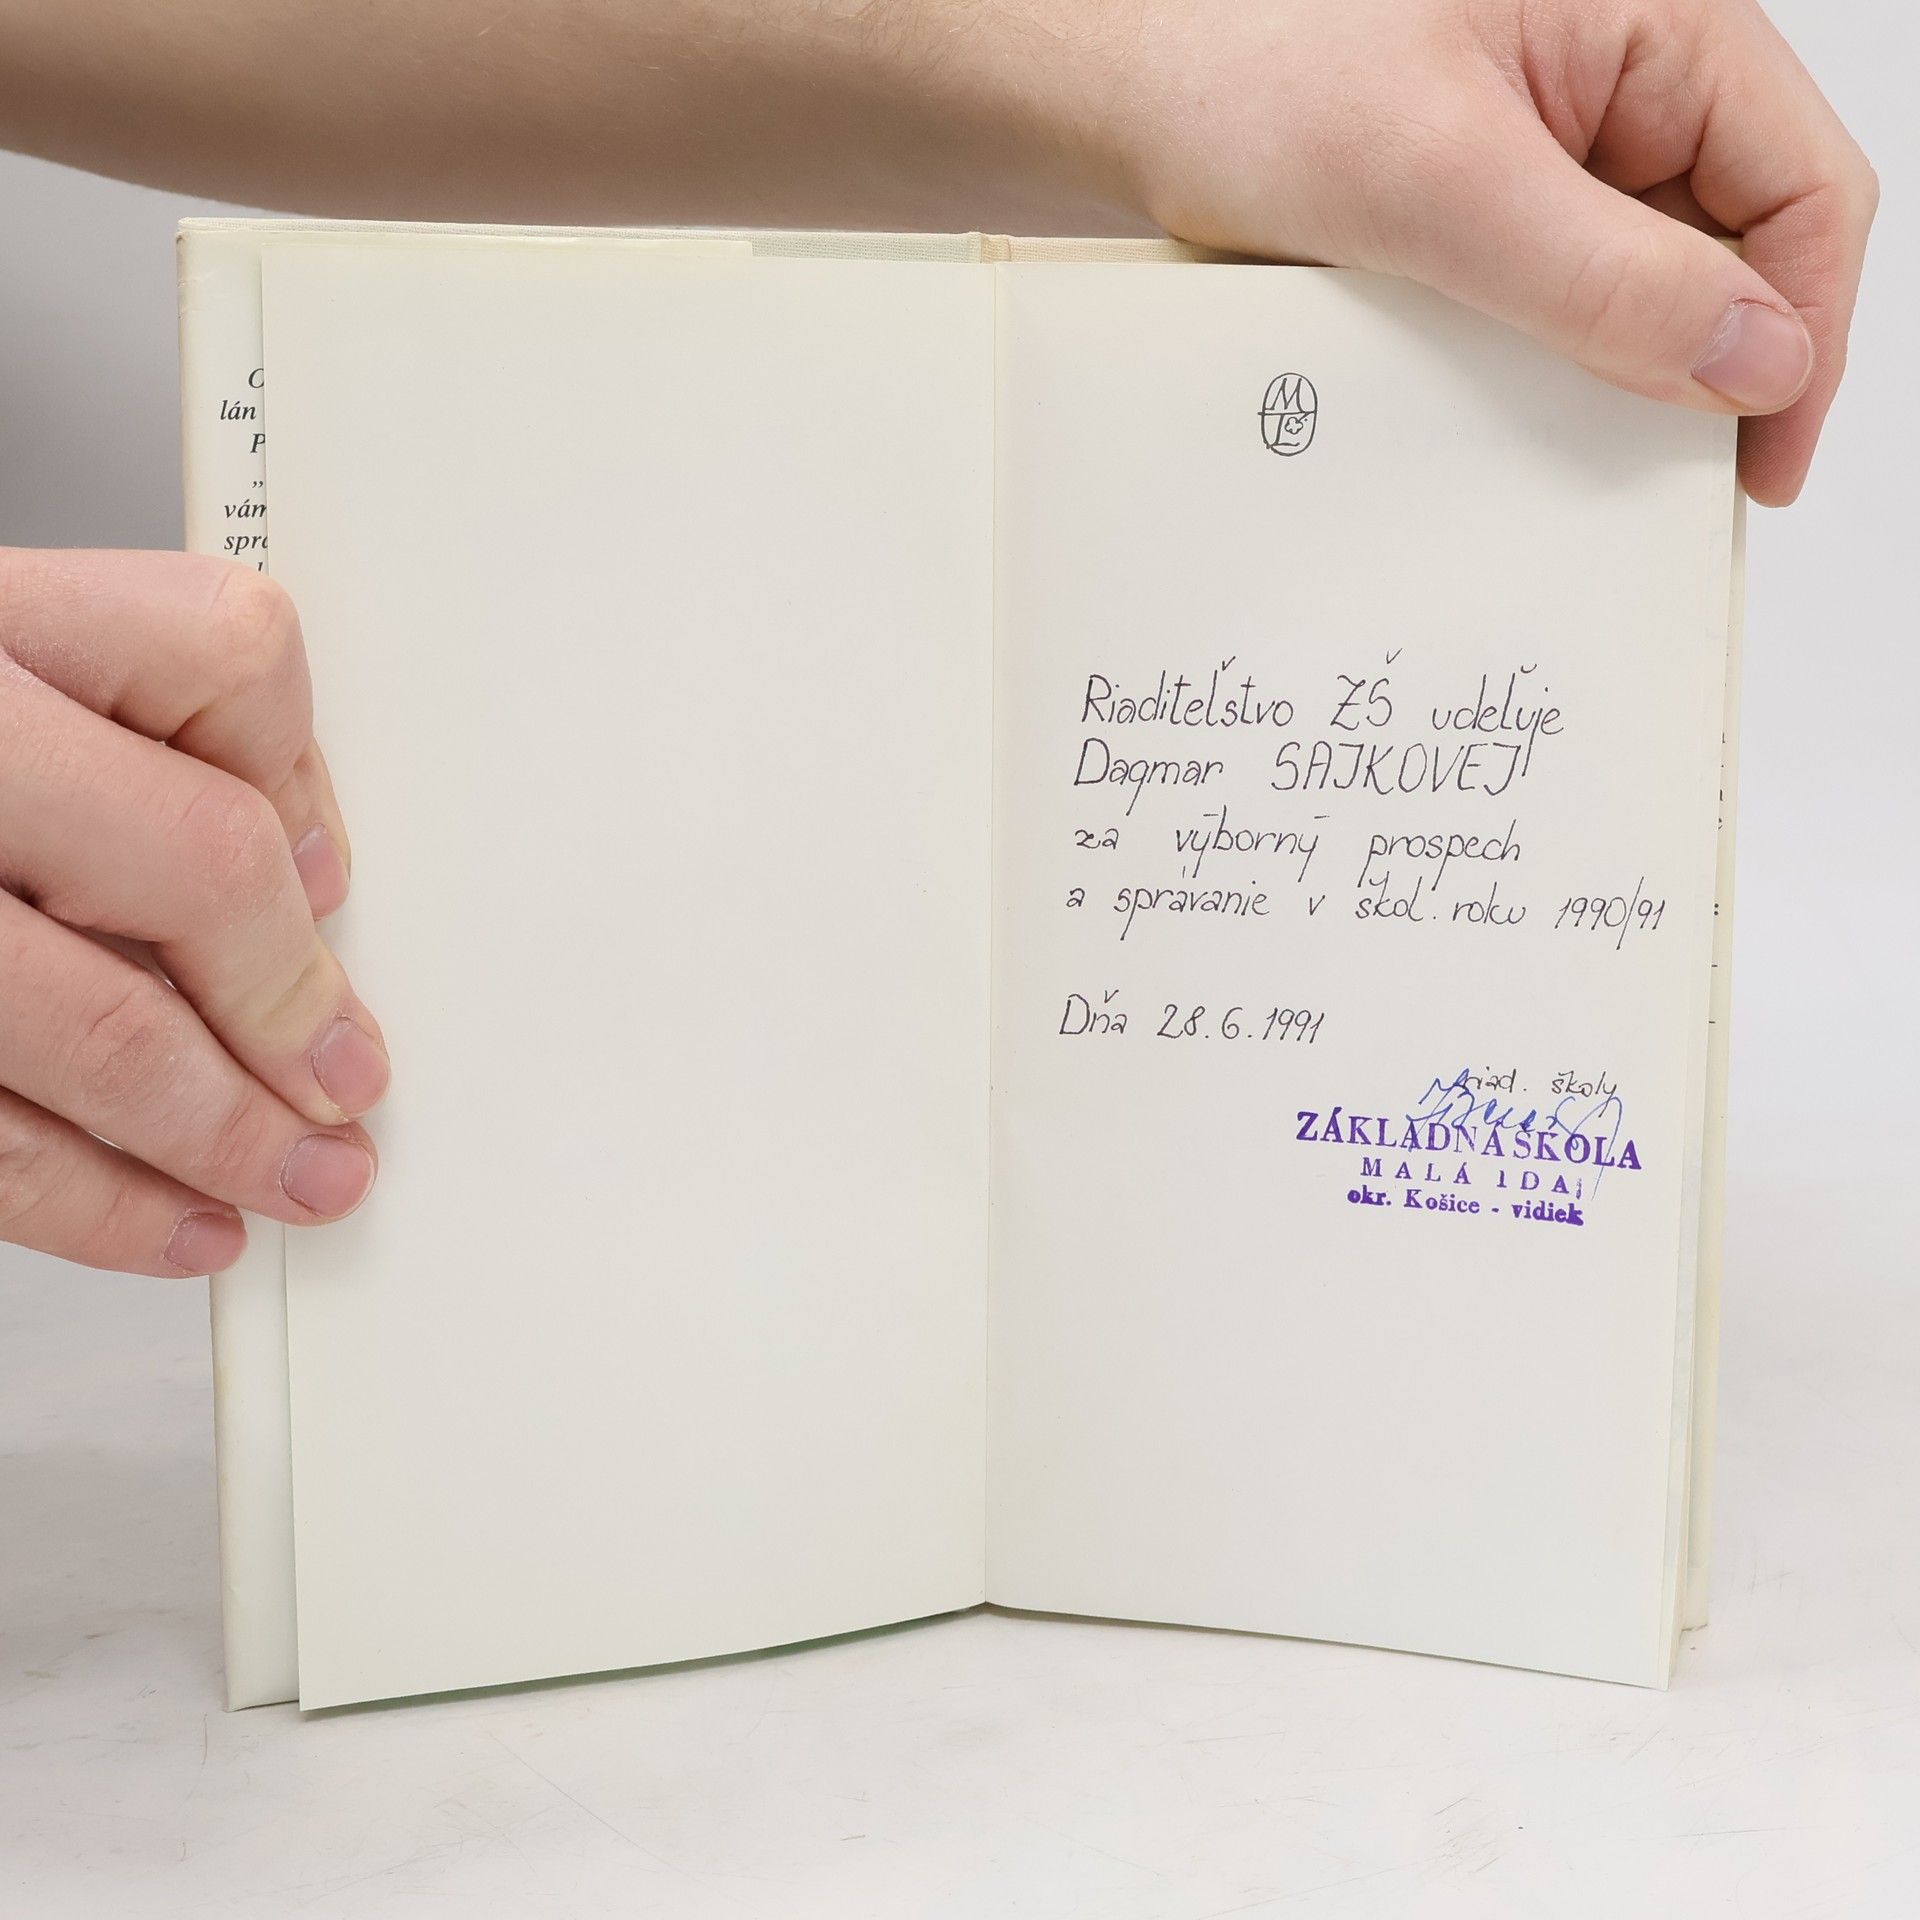 lán
P
„
vám
ML
Riaditeľstvo ZŠ udeľuje
Dagmar SAJKOVEJ
za výborný prospech
a správanie v škol. roku 1990/91
Dňa 28.6.1991
riad. školy
ZÁKLADNÁ ŠKOLA
MALÁ IDA
okr. Košice - vidiek